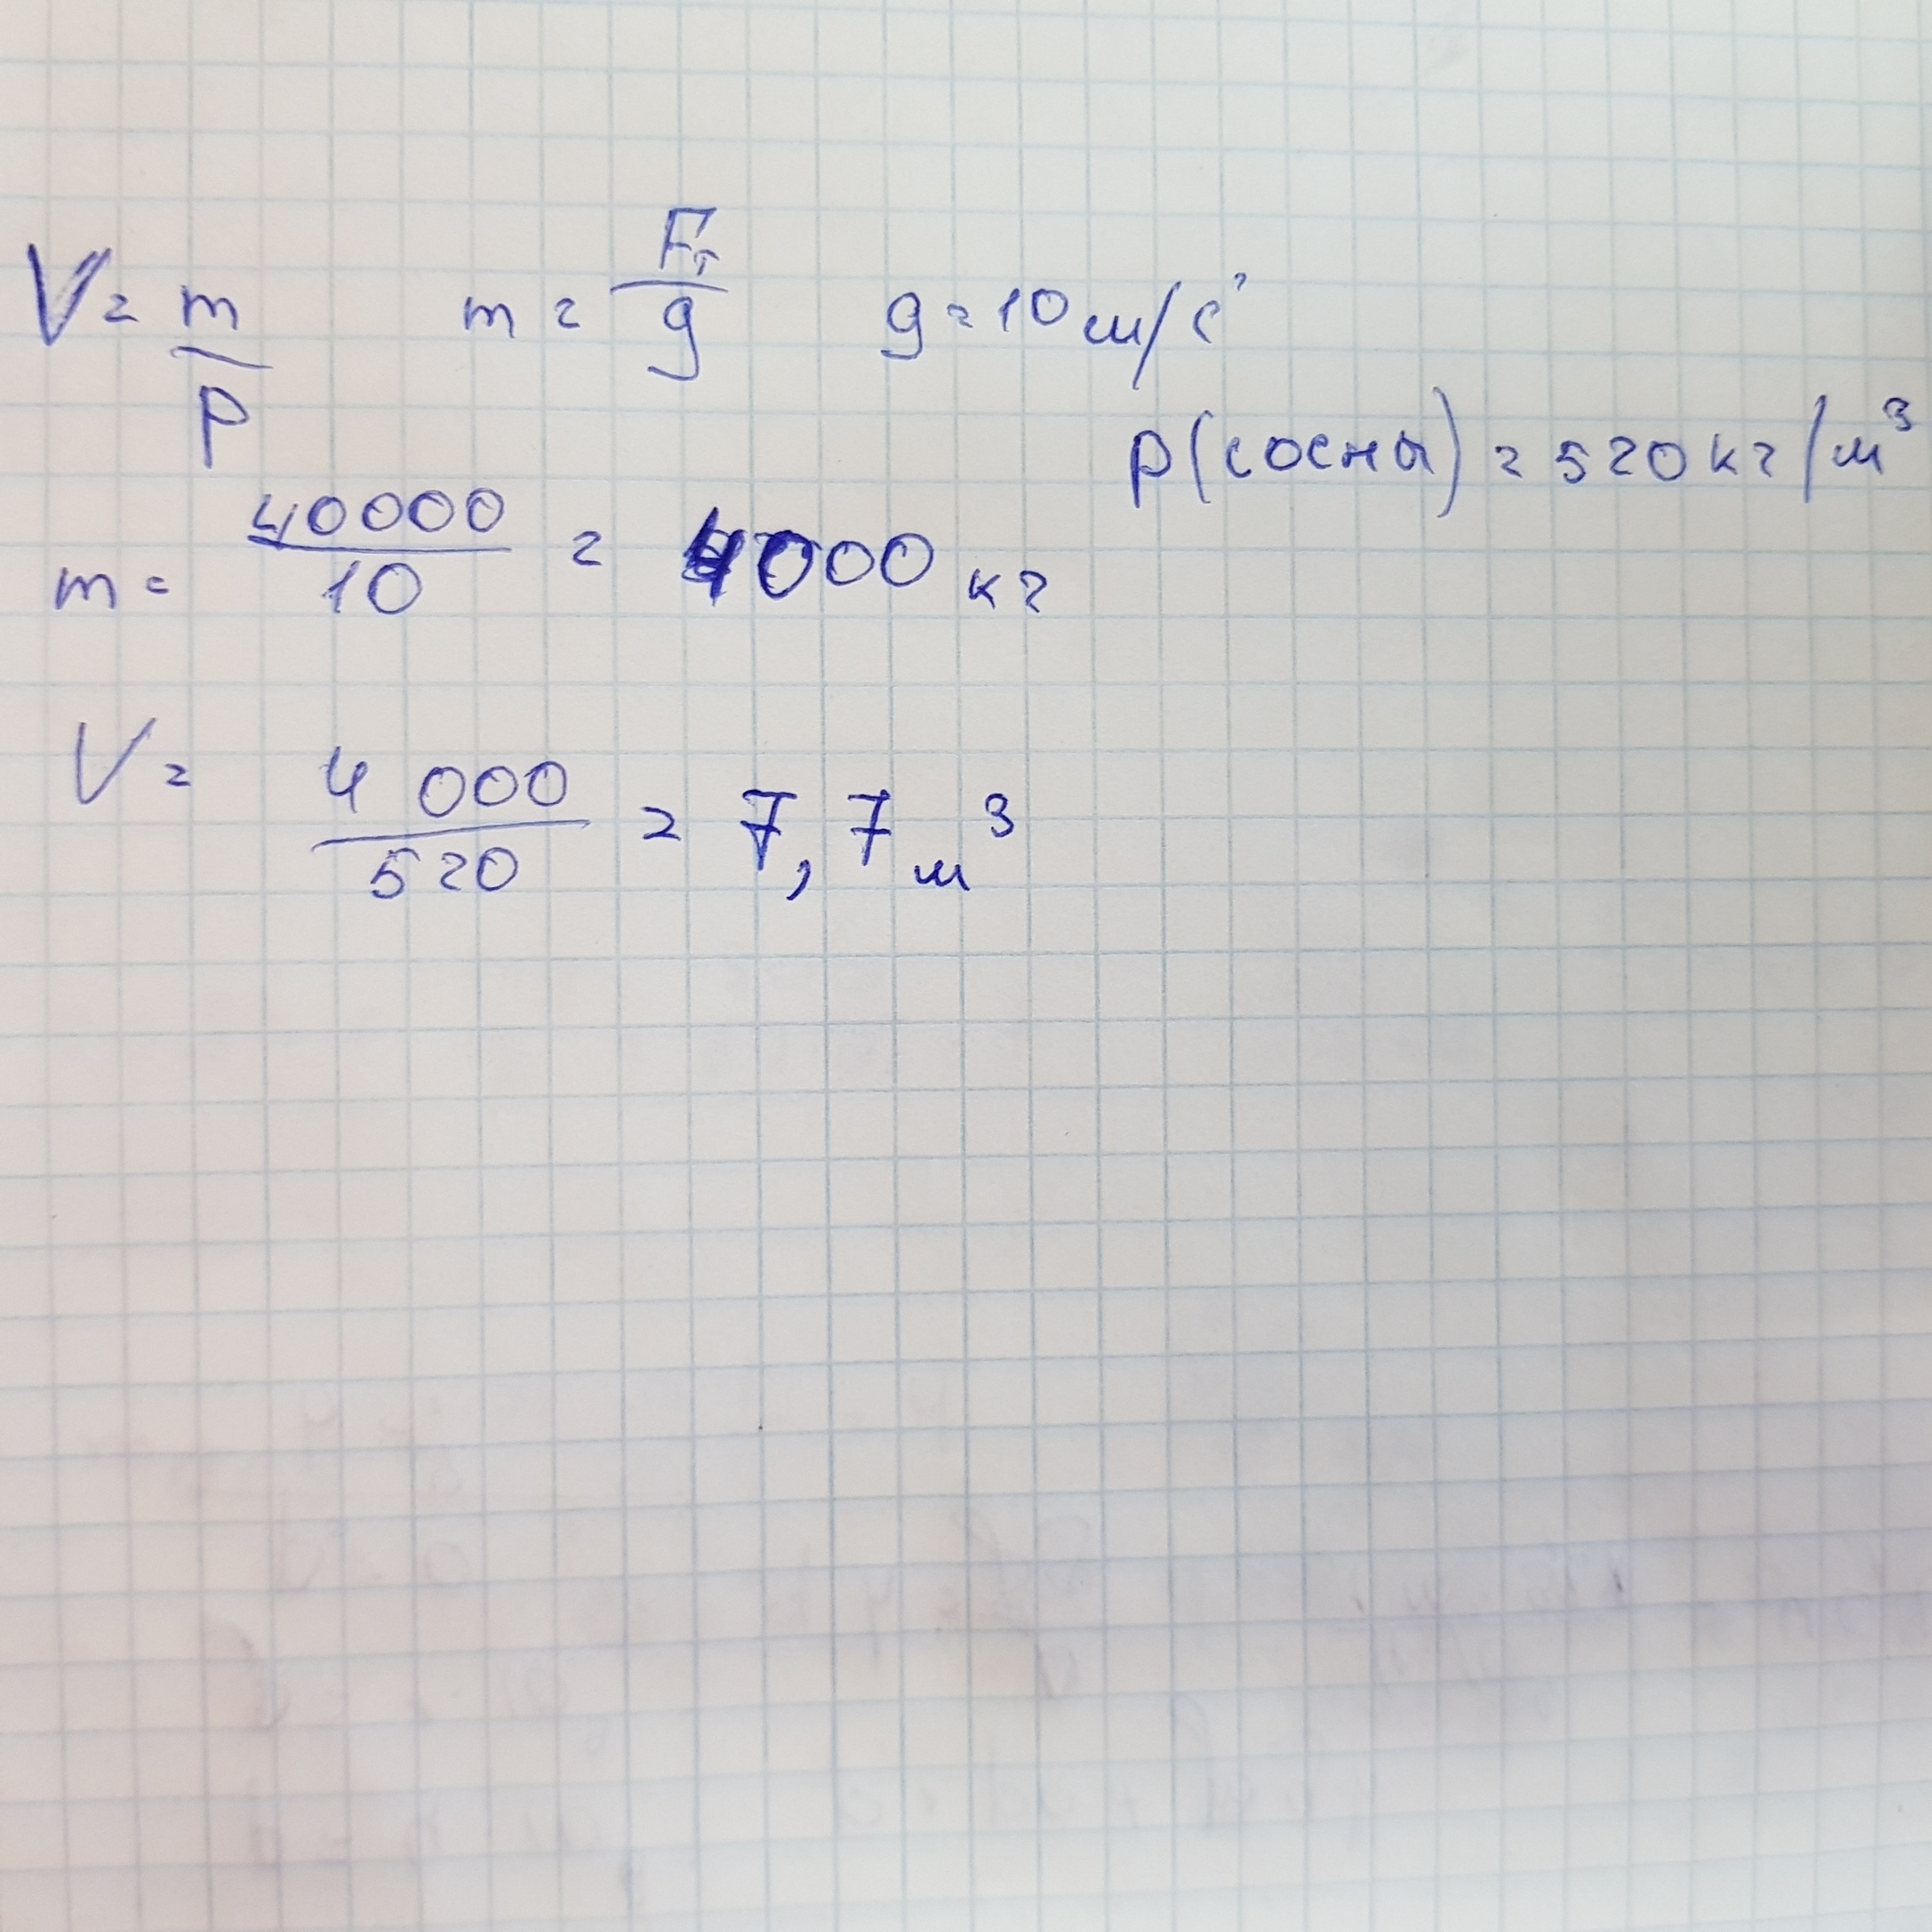 V = m/ρ m = Fт/g g = 10 м/с²
ρ(сосны) = 520 кг/м³
m = 40000/10 = 4000 кг
V = 4 000/520 = 7,7 м³